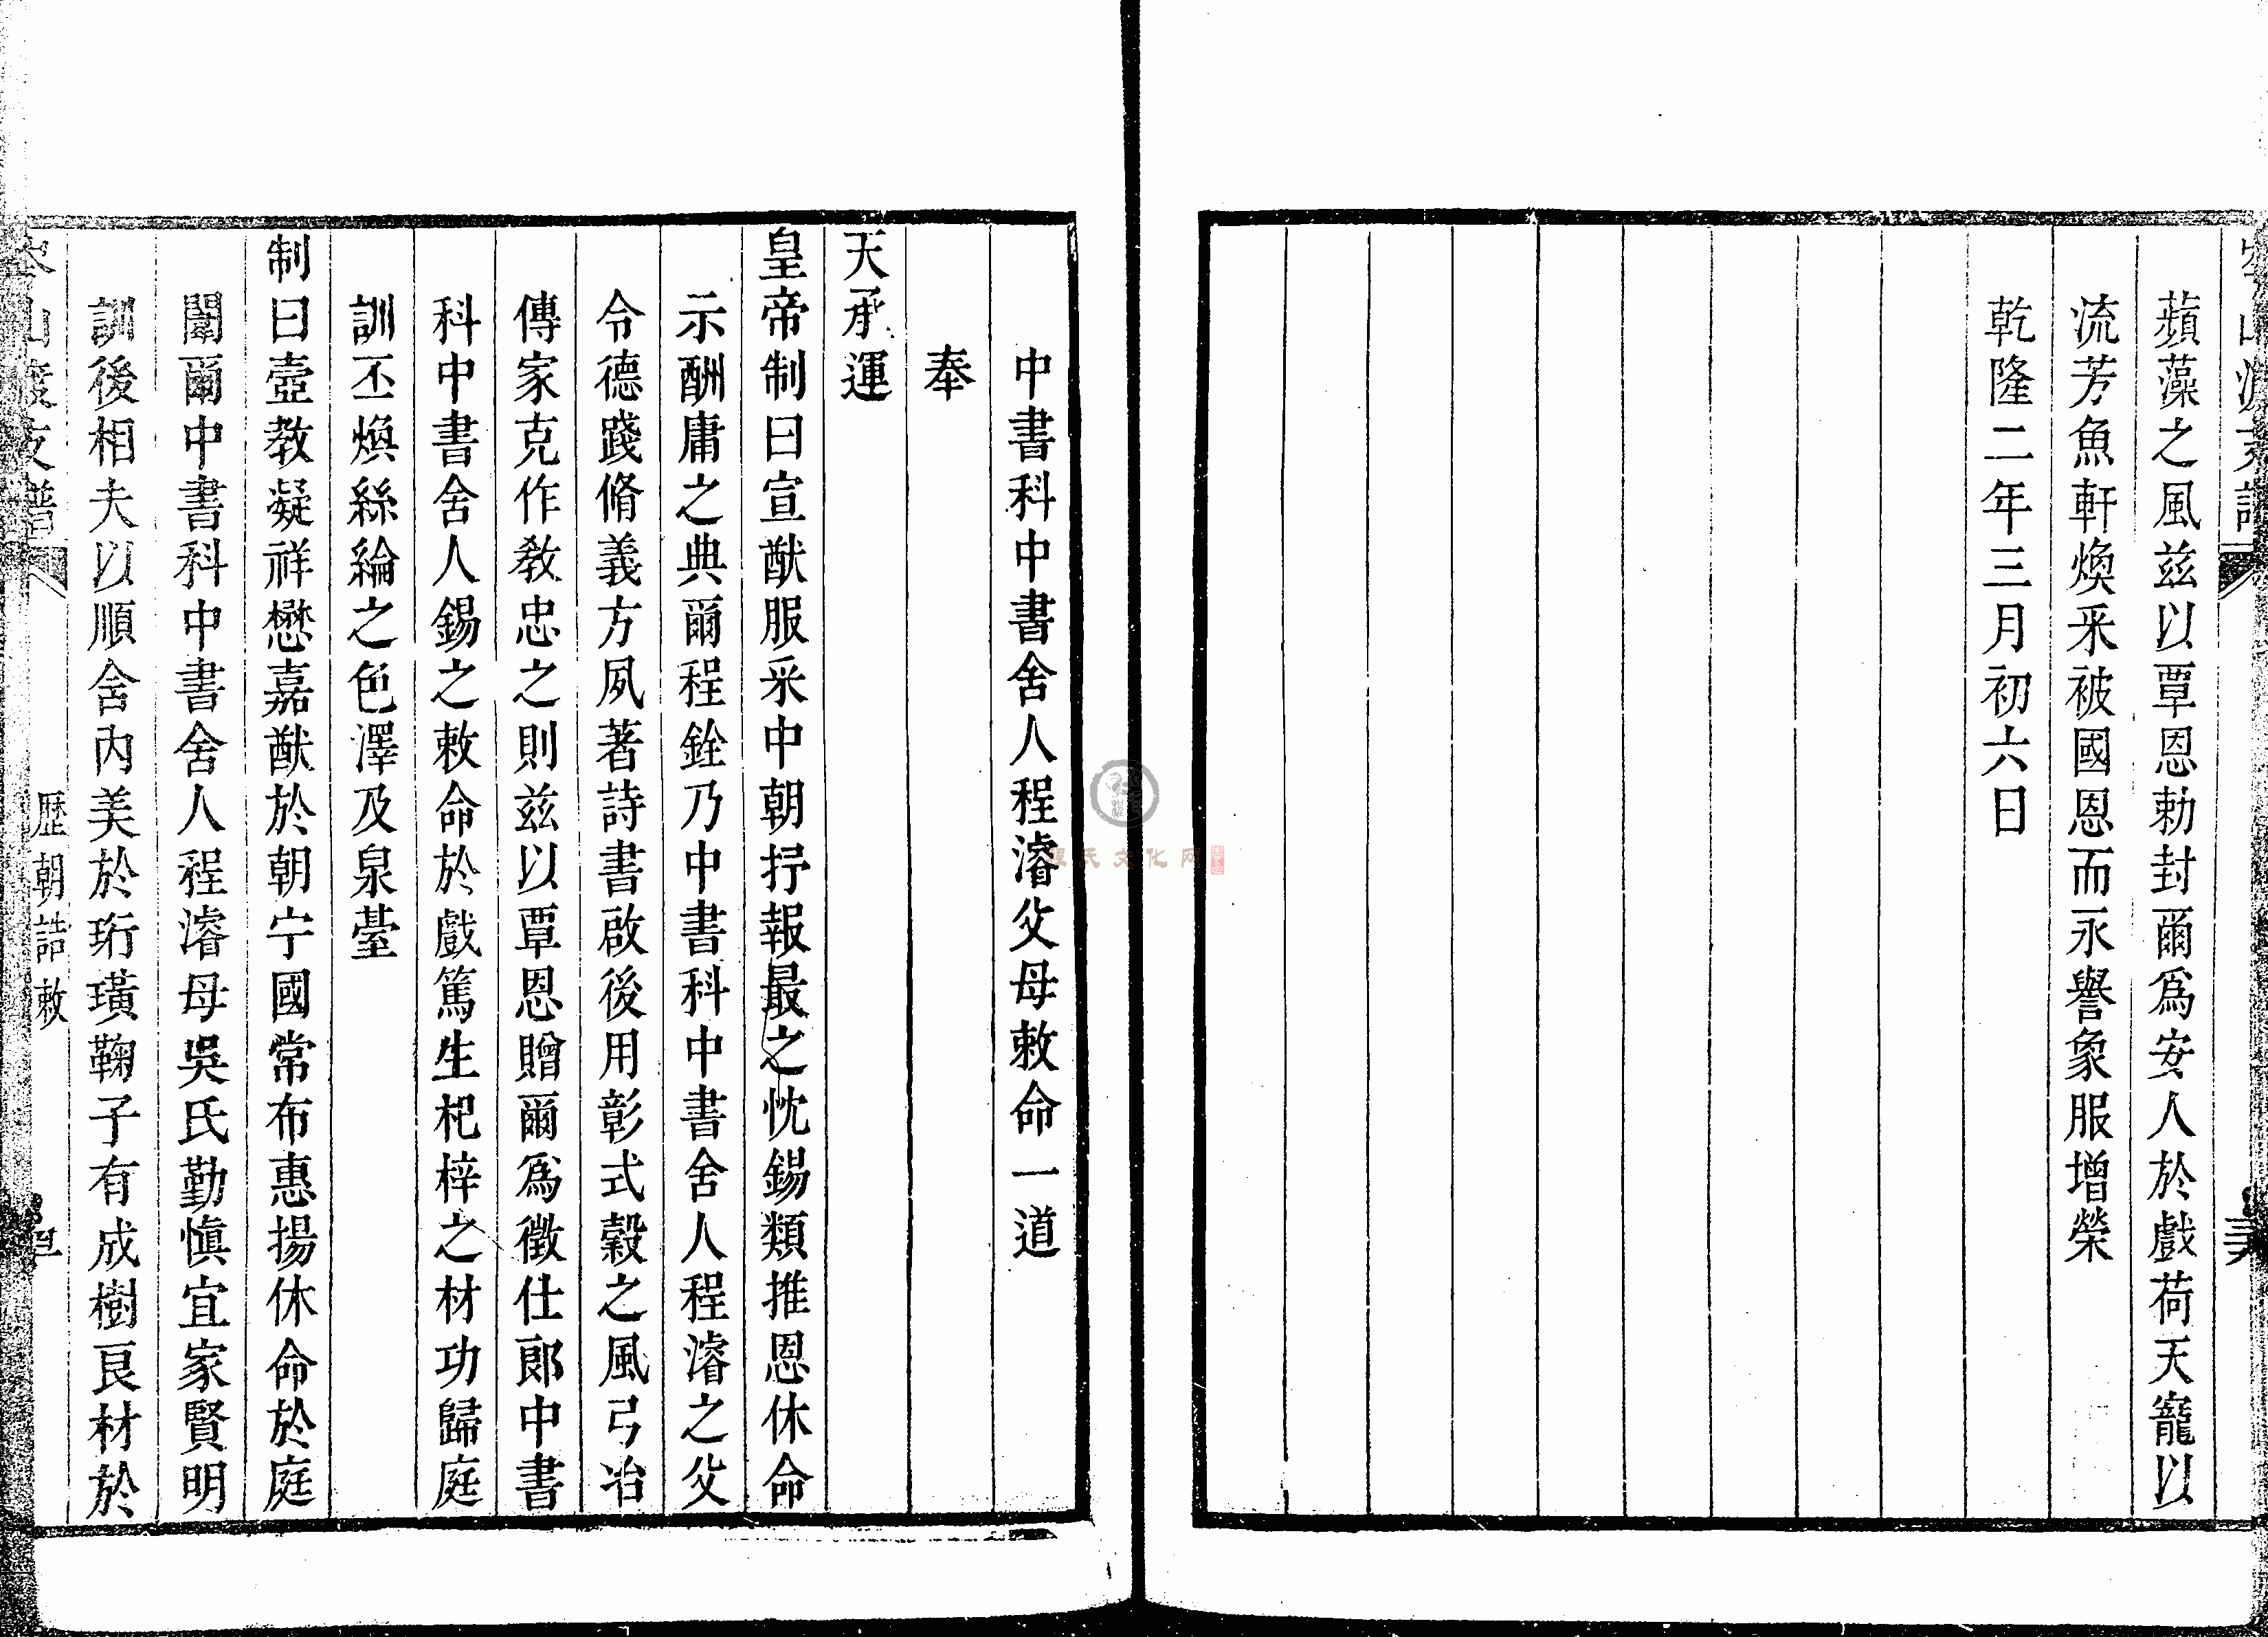 蘋藻之風兹以覃恩勅封爾爲安人於戲荷天寵以
流芳魚軒煥采被國恩而永譽象服增榮
乾隆二年三月初六日
中書科中書舍人程濬父母敕命一道
奉
天承運
皇帝制曰宣猷服采中朝抒報最之忱錫類推恩休命
示酬庸之典爾程銓乃中書科中書舍人程濬之父
令德踐脩義方夙著詩書啟後用彰式穀之風弓冶
傳家克作敎忠之則兹以覃恩贈爾爲徵仕郎中書
科中書舍人錫之敕命於戲篤生杞梓之材功歸庭
訓丕煥絲綸之色澤及泉臺
制曰壼教凝祥懋嘉猷於朝宁國常布惠揚休命於庭
闈爾中書科中書舍人程濬母吳氏勤愼宜家賢明
訓後相夫以順含內美於珩璜鞠子有成樹良材於
歷朝誥敕
程氏文化网